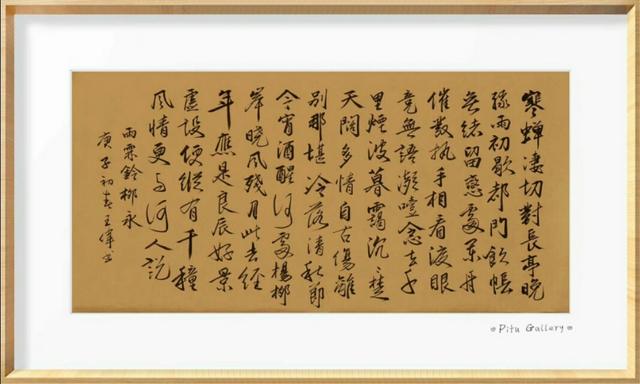 寒蟬凄切對長亭晚
驟雨初歇都門飲帳
無緒留戀處蘭舟
催發執手相看淚眼
竟無語凝噎念去々千
里煙波暮靄沉々楚
天闊多情自古傷離
別那堪冷落清秋節
今宵酒醒何處楊柳
岸曉風殘月此去經
年應是良辰好景
虛設便縱有千種
風情更與何人說
雨霖鈴柳永
庚子初春王
Pitu Gallery